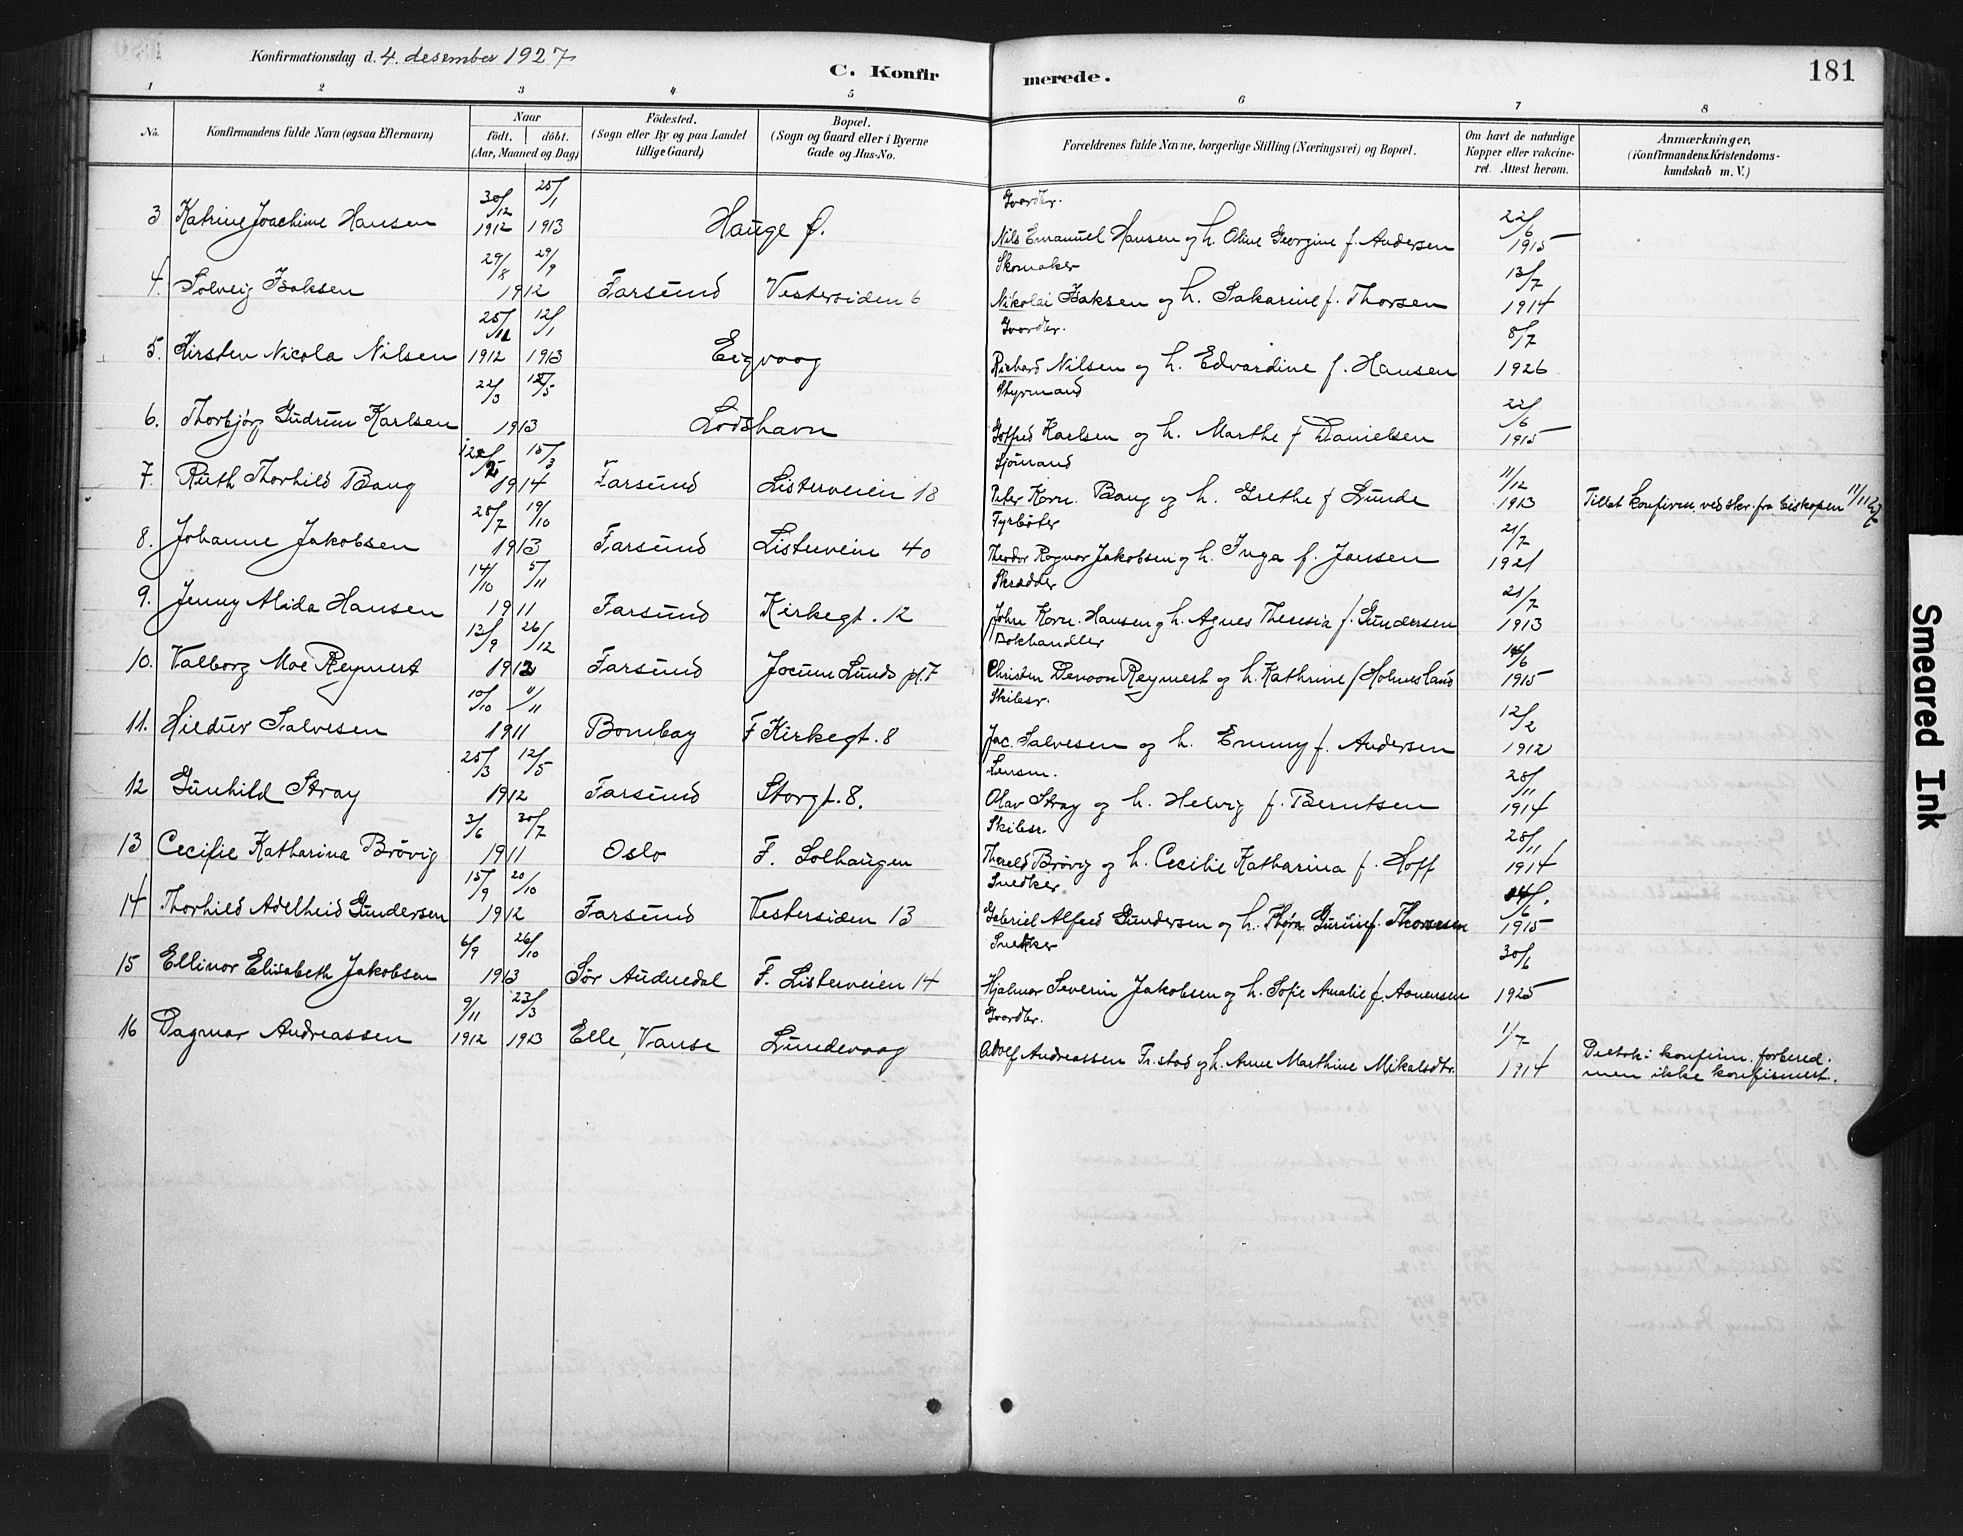 Konfirmationsdag d. 4. desember 1927
C. Konfir merede.
181
1 2 3 4 5 6 7 8
No.
Konfirmandens fulde Navn (ogsaa Efternavn)
Naar
födt. döbt.
(Aar, Maaned og Dag)
Födested.
(Sogn eller By og paa Landet
tillige Gaard)
Bopæl.
(Sogn og Gaard eller i Byerne
Gade og Hus-No.
Forældrenes fulde Navne, borgerlige Stilling (Næringsvei) og Bopæl.
Om havt de naturlige
Kopper eller vakcine-
ret. Attest herom.
Anmærkninger,
(Konfirmandens Kristendoms-
kundskab m. V.)
3 Katrine Joachime Hansen 30/12 1912 25/1 1913 Hauge f. Nils Emanuel Hansen og h. Oline Georgine f. Andersen 22/6 1915
Skomaker
4. Solveig Isaksen 29/8 29/9 1912 Farsund Vestersiden 6 Nikolai Isaksen og h. Sakarine f. Thorsen 13/7 1914
5. Kirsten Nicola Nilsen 25/11 1912 12/1 1913 Eigvaag Rickard Nilsen og h. Edvardine f. Hansen 8/7 1926
Styrmand
6. Thorbjörg Gudrun Karlsen 22/3 12/5 1913 Lodshavn Gotfred Karlsen og h. Marthe f Danielsen 22/6 1915
Sjömand
7. Ruth Thorhild Bang 15/3 1914 Farsund Listerveien 18 Peter Korn. Bang og h. Grethe f Lunde 11/12 1913 Tillat konfirm. ved skr. fra biskopen 17/11 27
Fyrböter
8. Johanne Jakobsen 28/7 19/10 1913 Farsund Listerveien 40 Theodor Ragnar Jakobsen og h. Inga f. Jansen 21/7 1921
Skrædder
9. Jenny Alida Hansen 14/10 5/11 1911 Farsund Kirkegt. 12 John Korn. Hansen og h. Agnes Theresia f. Gundersen 21/7 1913
Bokhandler
10. Valborg Moe Reymert 13/9 26/12 1912 Farsund Jocum Lunds pl. 7 Christen Devoon Reymert og h. Kathrine f Holmesland 14/6 1915
Skibsr.
11. Hildur Salvesen 10/10 11/11 1911 Bombay F Kirkegt. 8 Jac. Salvesen og h. Emmy f. Andersen 12/2 1912
Lensm.
12 Gunhild Stray 25/3 12/5 1912 Farsund Storgt. 8. Olav Stray og h. Helvig f. Berntsen 28/11 1914
Skibsr.
13 Cecilie Katharina Brövig 3/6 30/7 1911 Oslo F. Solhaugen Thorald Brövig og h. Cecilie Katharina f. Hoff 28/11 1914
Snedker
14 Thorhild Adelheid Gundersen 15/9 20/10 1912 Farsund Vestersiden 13 Gabriel Alfred Gundersen og h. Thora f. Thomesen 1915
Snekker
15 Ellinor Elisabeth Jakobsen 6/9 26/10 1913 Sör Audnedal F. Listerveien 14 Hjalmar Severin Jakobsen og h. Sofie Amalie f. Aanensen 30/6 1925
16 Dagmar Andreassen 9/11 1912 23/3 1913 Elle, Vanse Lundevaag Adolf Andreassen Fr.stad og h. Anne Marthine Mikalsdtr. 1/7 1914 Deltok i konfirm. forbered.
men ikke konfirmert.
Smeared Ink